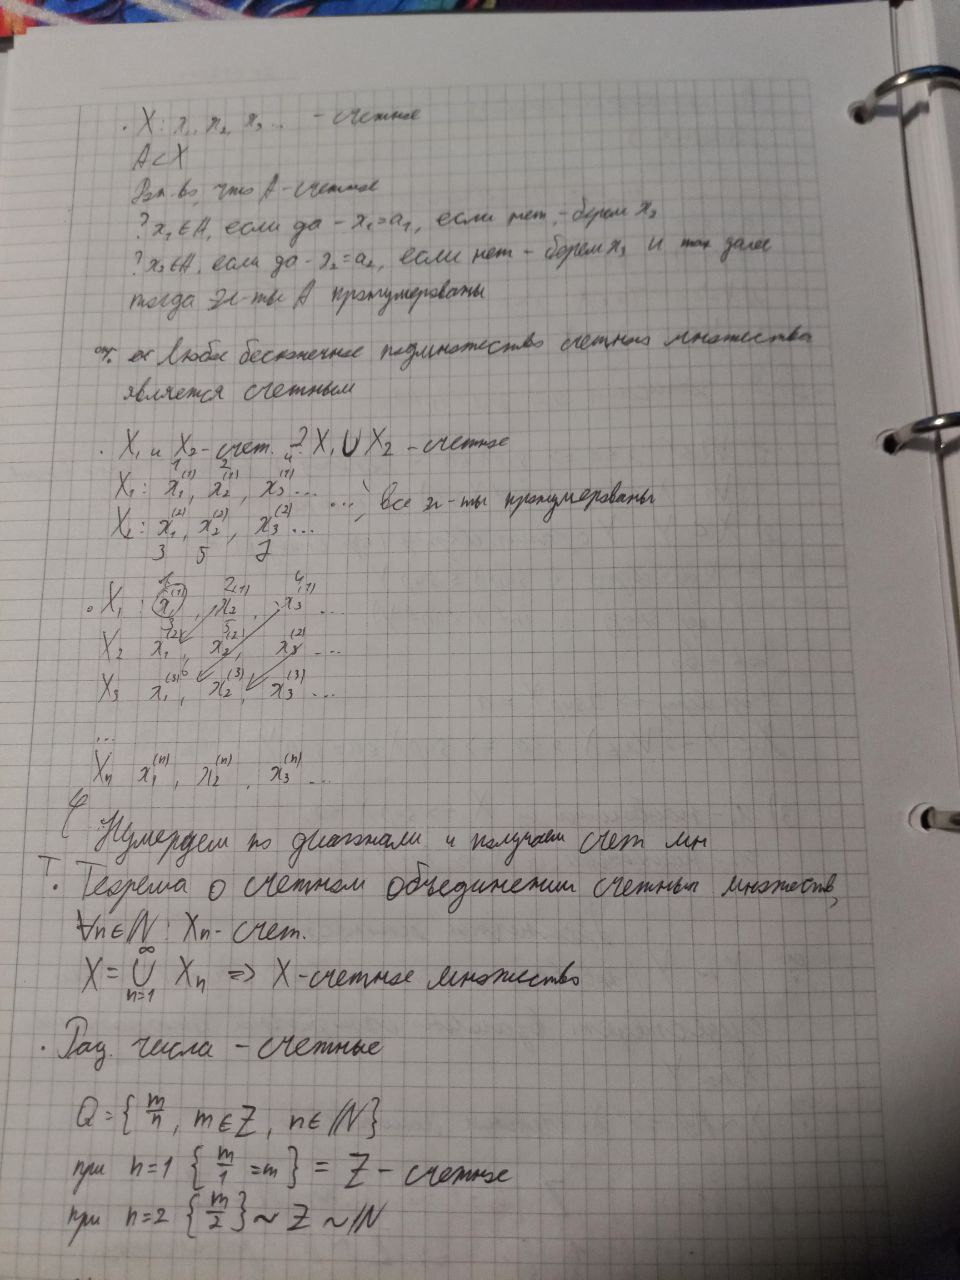 · X: x₁, x₂, x₃ ... - счетное
A ⊂ X
Док-во, что A - счетное
? x₁ ∈ A, если да - x₁ = a₁, если нет - берем x₂
? x₂ ∈ A, если да - x₂ = a₂, если нет - берем x₃ и так далее
тогда эл-ты A пронумерованы
Любое бесконечное подмножество счетного множества
является счетным
· X₁ и X₂ - счет. ? X₁ ∪ X₂ - счетное
1 2 4
X₁: x₁⁽¹⁾, x₂⁽¹⁾, x₃⁽¹⁾ ...
...; все эл-ты пронумерованы
X₂: x₁⁽²⁾, x₂⁽²⁾, x₃⁽²⁾ ...
3 5 7
1 2 4
· X₁: x₁⁽¹⁾, x₂⁽¹⁾, x₃⁽¹⁾ ...
3 5
X₂ x₁⁽²⁾, x₂⁽²⁾, x₃⁽²⁾ ...
6
X₃ x₁⁽³⁾, x₂⁽³⁾, x₃⁽³⁾ ...
...
Xₙ x₁⁽ⁿ⁾, x₂⁽ⁿ⁾, x₃⁽ⁿ⁾ ...
Нумеруем по диагонали и получаем счет мн
Т. Теорема о счетном объединении счетных множеств,
∀n ∈ ℕ: Xₙ - счет.
X = ∪ₙ₌₁^∞ Xₙ => X - счетное множество
· Рац. числа - счетные
Q = { m/n, m ∈ Z, n ∈ ℕ }
при n = 1 { m/1 = m } = Z - счетное
при n = 2 { m/2 } ~ Z ~ ℕ